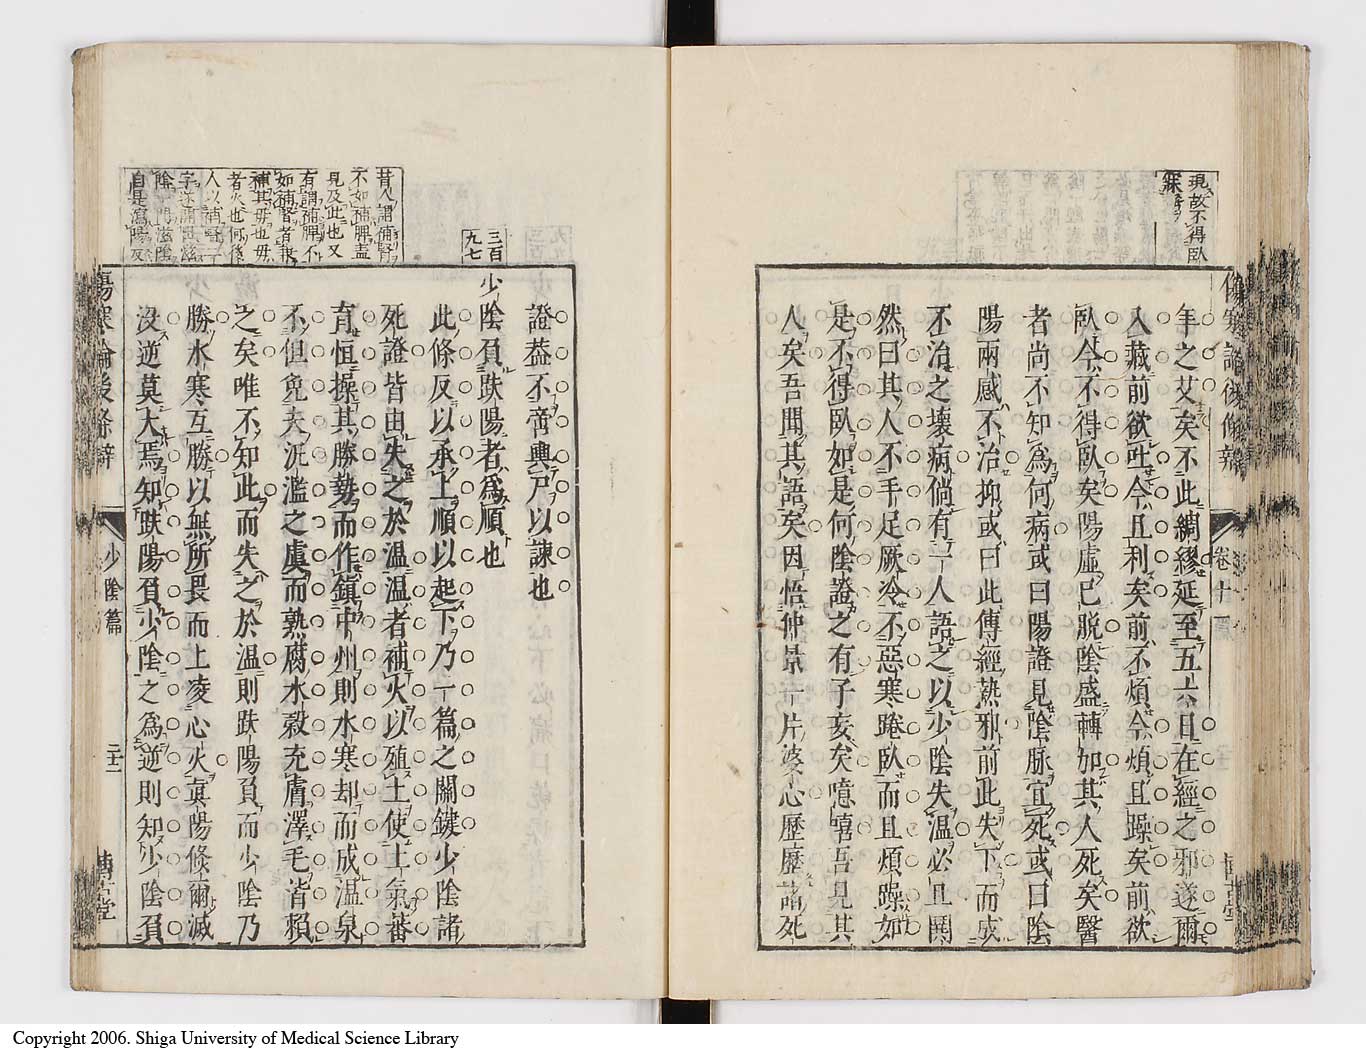 現故不得臥
寐
年之艾矣不此綢繆延至五六日在經之邪遂爾
入藏前欲吐今且利矣前不煩今煩且躁矣前欲
臥今不得臥矣陽虛已脫陰盛轉加其人死矣醫
者尚不知為何病或曰陽證見陰脉宜死或曰陰
陽兩感不治抑或曰此傳經熱邪前此失下而成
不治之壞病倘有一人語之以少陰失温必且鬨
然曰其人不手足厥冷不惡寒踡臥而且煩躁如
是不得臥如是何陰證之有子妄矣噫嘻吾見其
人矣吾聞其語矣因悟仲景一片婆心歷歷諸死
卷十一
三百九七
昔人謂補腎
不如補脾盖
見及此也又
有謂補脾不
如補腎者
補其母也母
者火也何後
人以
陰
自是瀉陽反
證葢不啻輿尸以諫也
少陰負趺陽者為順也
此條反以承上順以起下乃一篇之關鍵少陰諸
死證皆由失之於温温者補火以殖土使土氣蕃
育恒操其勝勢而作鎮中州則水寒却而成温泉
不但免夫泛濫之虞而熟腐水穀充膚澤毛皆賴
之矣唯不知此而失之於温則趺陽負而少陰乃
勝水寒互勝以無所畏而上凌心火眞陽倏爾滅
沒逆莫大焉知趺陽負少陰之為逆則知少陰負
傷寒論後條辨
少陰篇
Copyright 2006. Shiga University of Medical Science Library